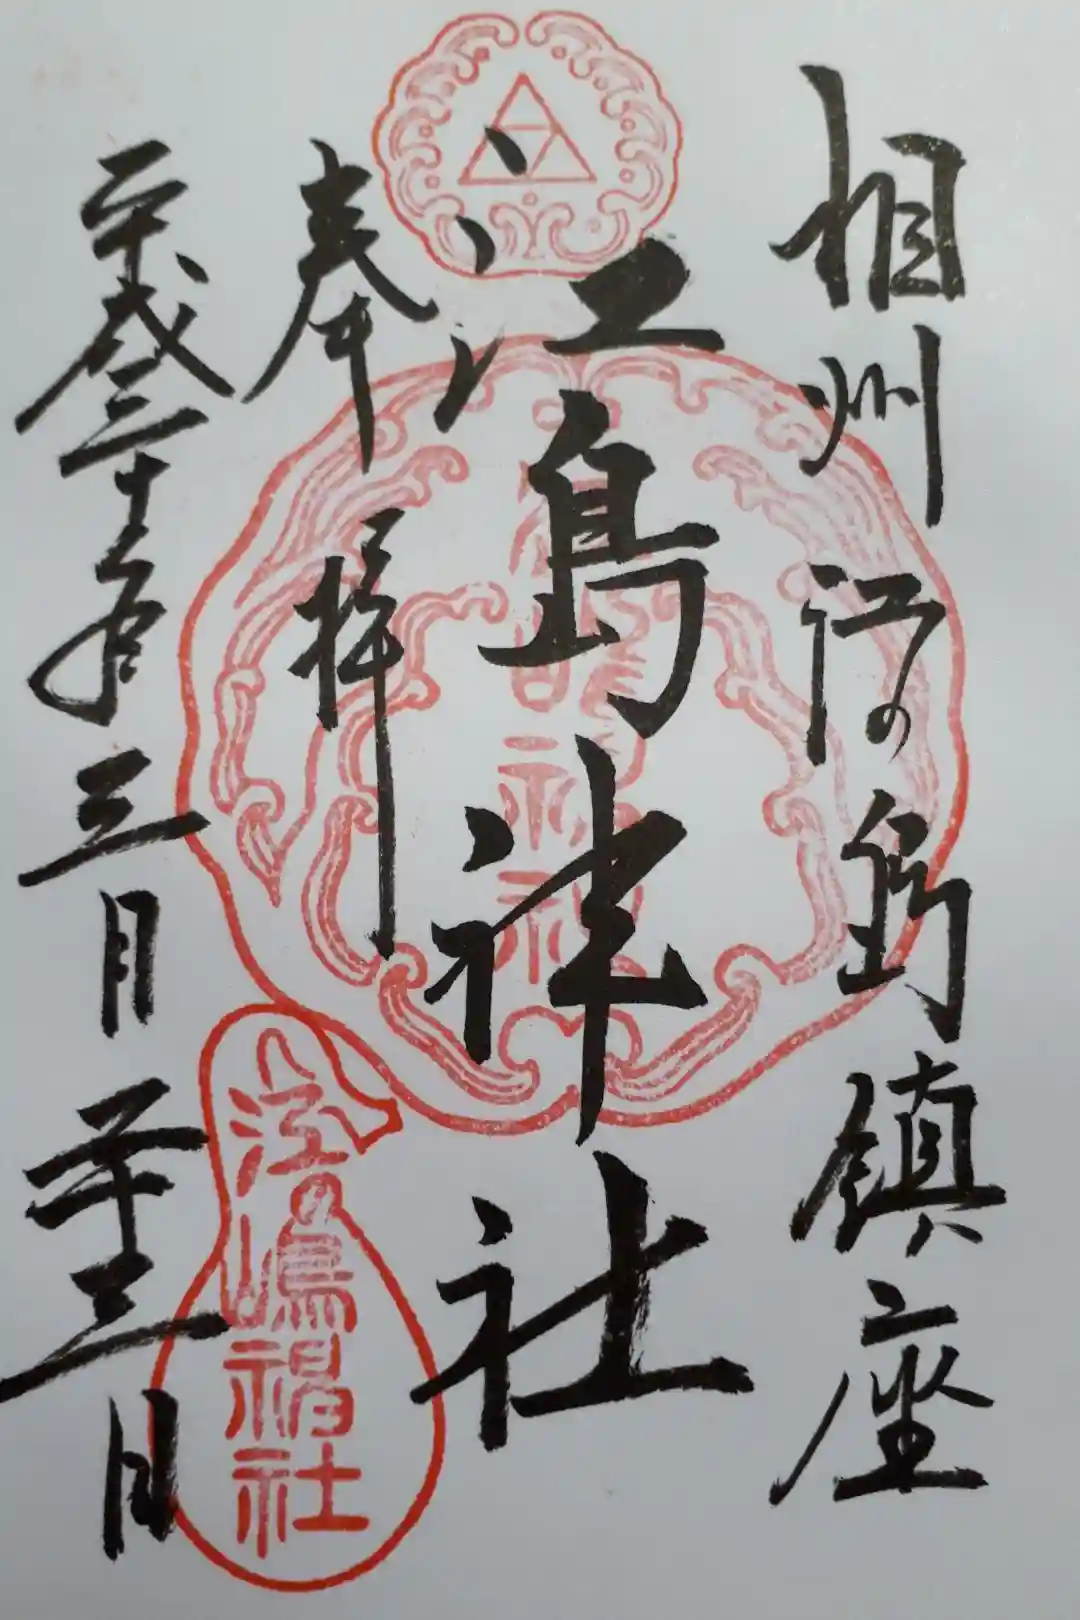 相州江の島鎮座
江島神社
奉拝
平成三十一年三月二十三日
江の嶋神社